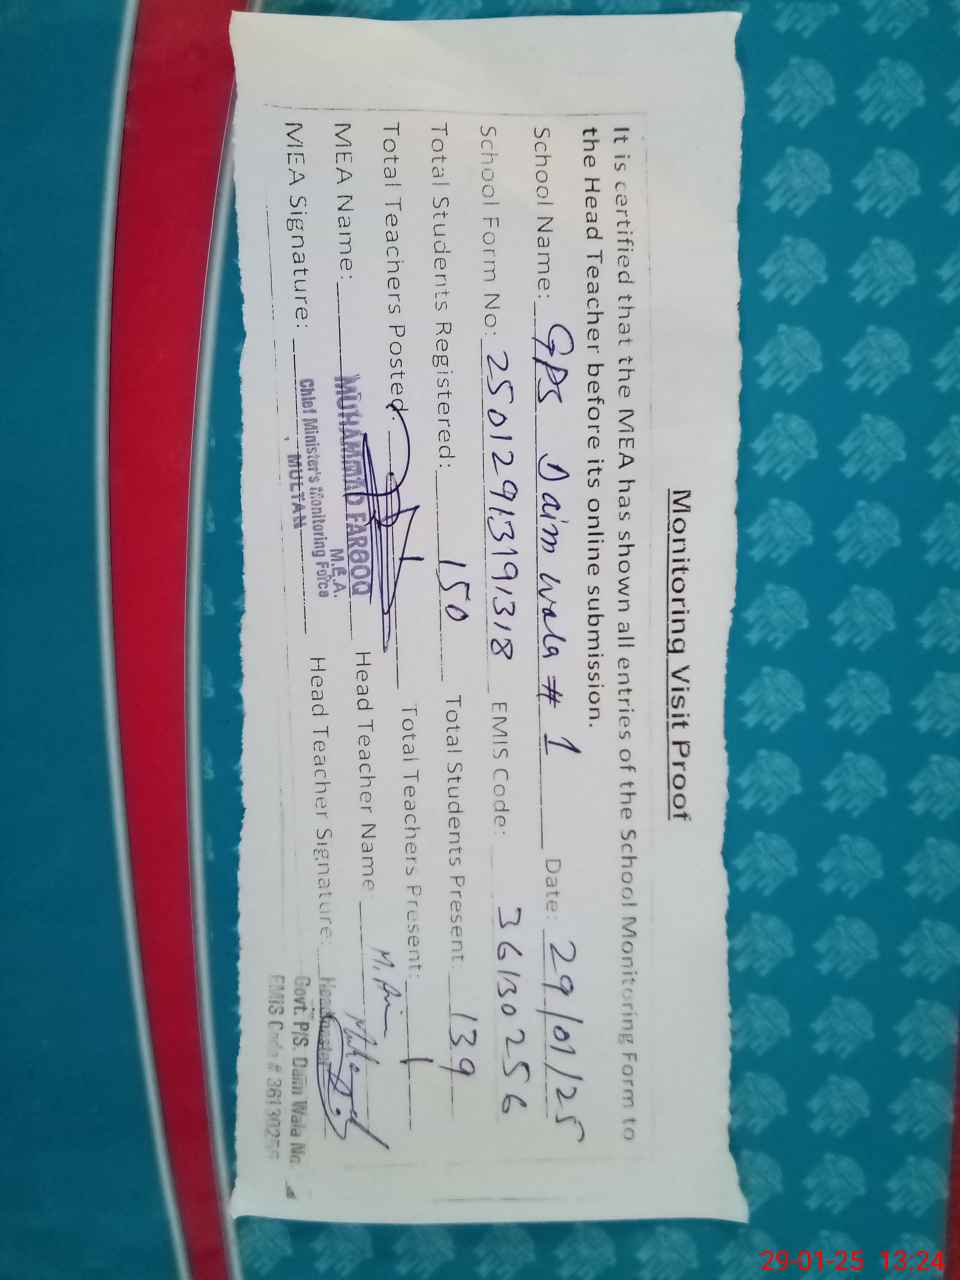 Monitoring Visit Proof
It is certified that the MEA has shown all entries of the School Monitoring Form to
the Head Teacher before its online submission.
School Name: GPS Daim wala # 1 Date: 29/01/25
School Form No: 2501291319 1318 EMIS Code: 36130256
Total Students Registered: 150 Total Students Present: 139
Total Teachers Posted: Total Teachers Present:
MEA Name: MUHAMMAD FAROOQ Head Teacher Name:
M.E.A.
MEA Signature: Chief Minister's Monitoring Force Head Teacher Signature: Headmaster
MULTAN Govt. P/S. Daim Wala No.
EMIS Code # 36130256
29-01-25 13:24